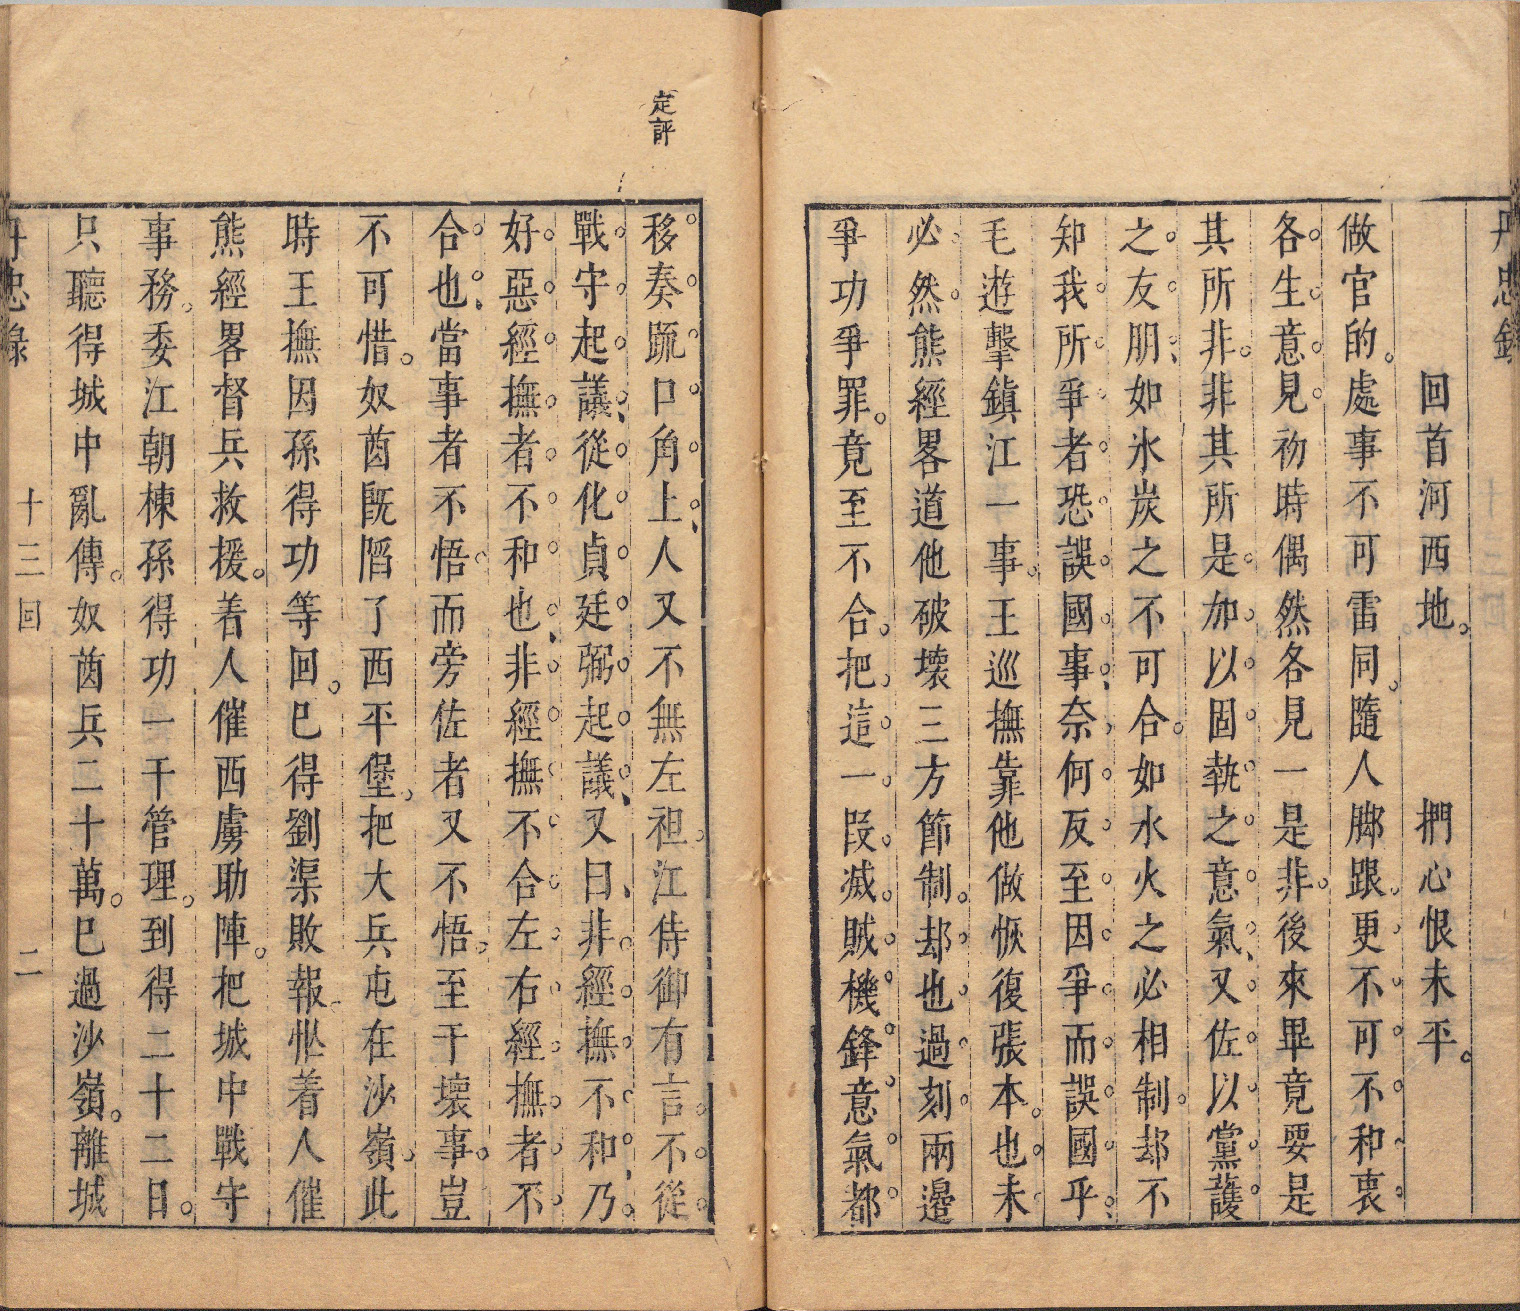 丹忠錄
回首河西地。　捫心恨未平。
做官的。處事不可雷同。隨人脚跟。更不可不和衷
各生意見。初時偶然各見一是非。後來畢竟要是
其所非。非其所是。加以固執之意氣、又佐以黨護
之友朋、如氷炭之不可合。如水火之必相制。却不
知我所爭者恐誤國事、奈何反至因爭而誤國乎、
毛遊擊鎮江一事。王巡撫靠他做恢復張本。也未
必然。熊經畧道他破壞三方節制。却也過刻。兩邊
爭功爭罪。竟至不合。把這一段滅賊機鋒意氣都
定評
移奏疏口角上、人又不無左袒。江侍御有言。不從
戰守起議、從化貞廷弼起議、又曰、非經撫不和、乃
好惡經撫者不和也、非經撫不合。左右經撫者不
合也、當事者不悟。而旁佐者又不悟。至于壞事。豈
不可惜。奴酋旣陷了西平堡。把大兵屯在沙嶺。此
時王撫因孫得功等回。已得劉渠敗報。怂着人催
熊經畧督兵救援。着人催西虜助陣。把城中戰守
事務。委江朝棟孫得功一干管理。到得二十二日。
只聽得城中亂傳。奴酋兵二十萬。已過沙嶺。離城
丹忠錄
十三回
二